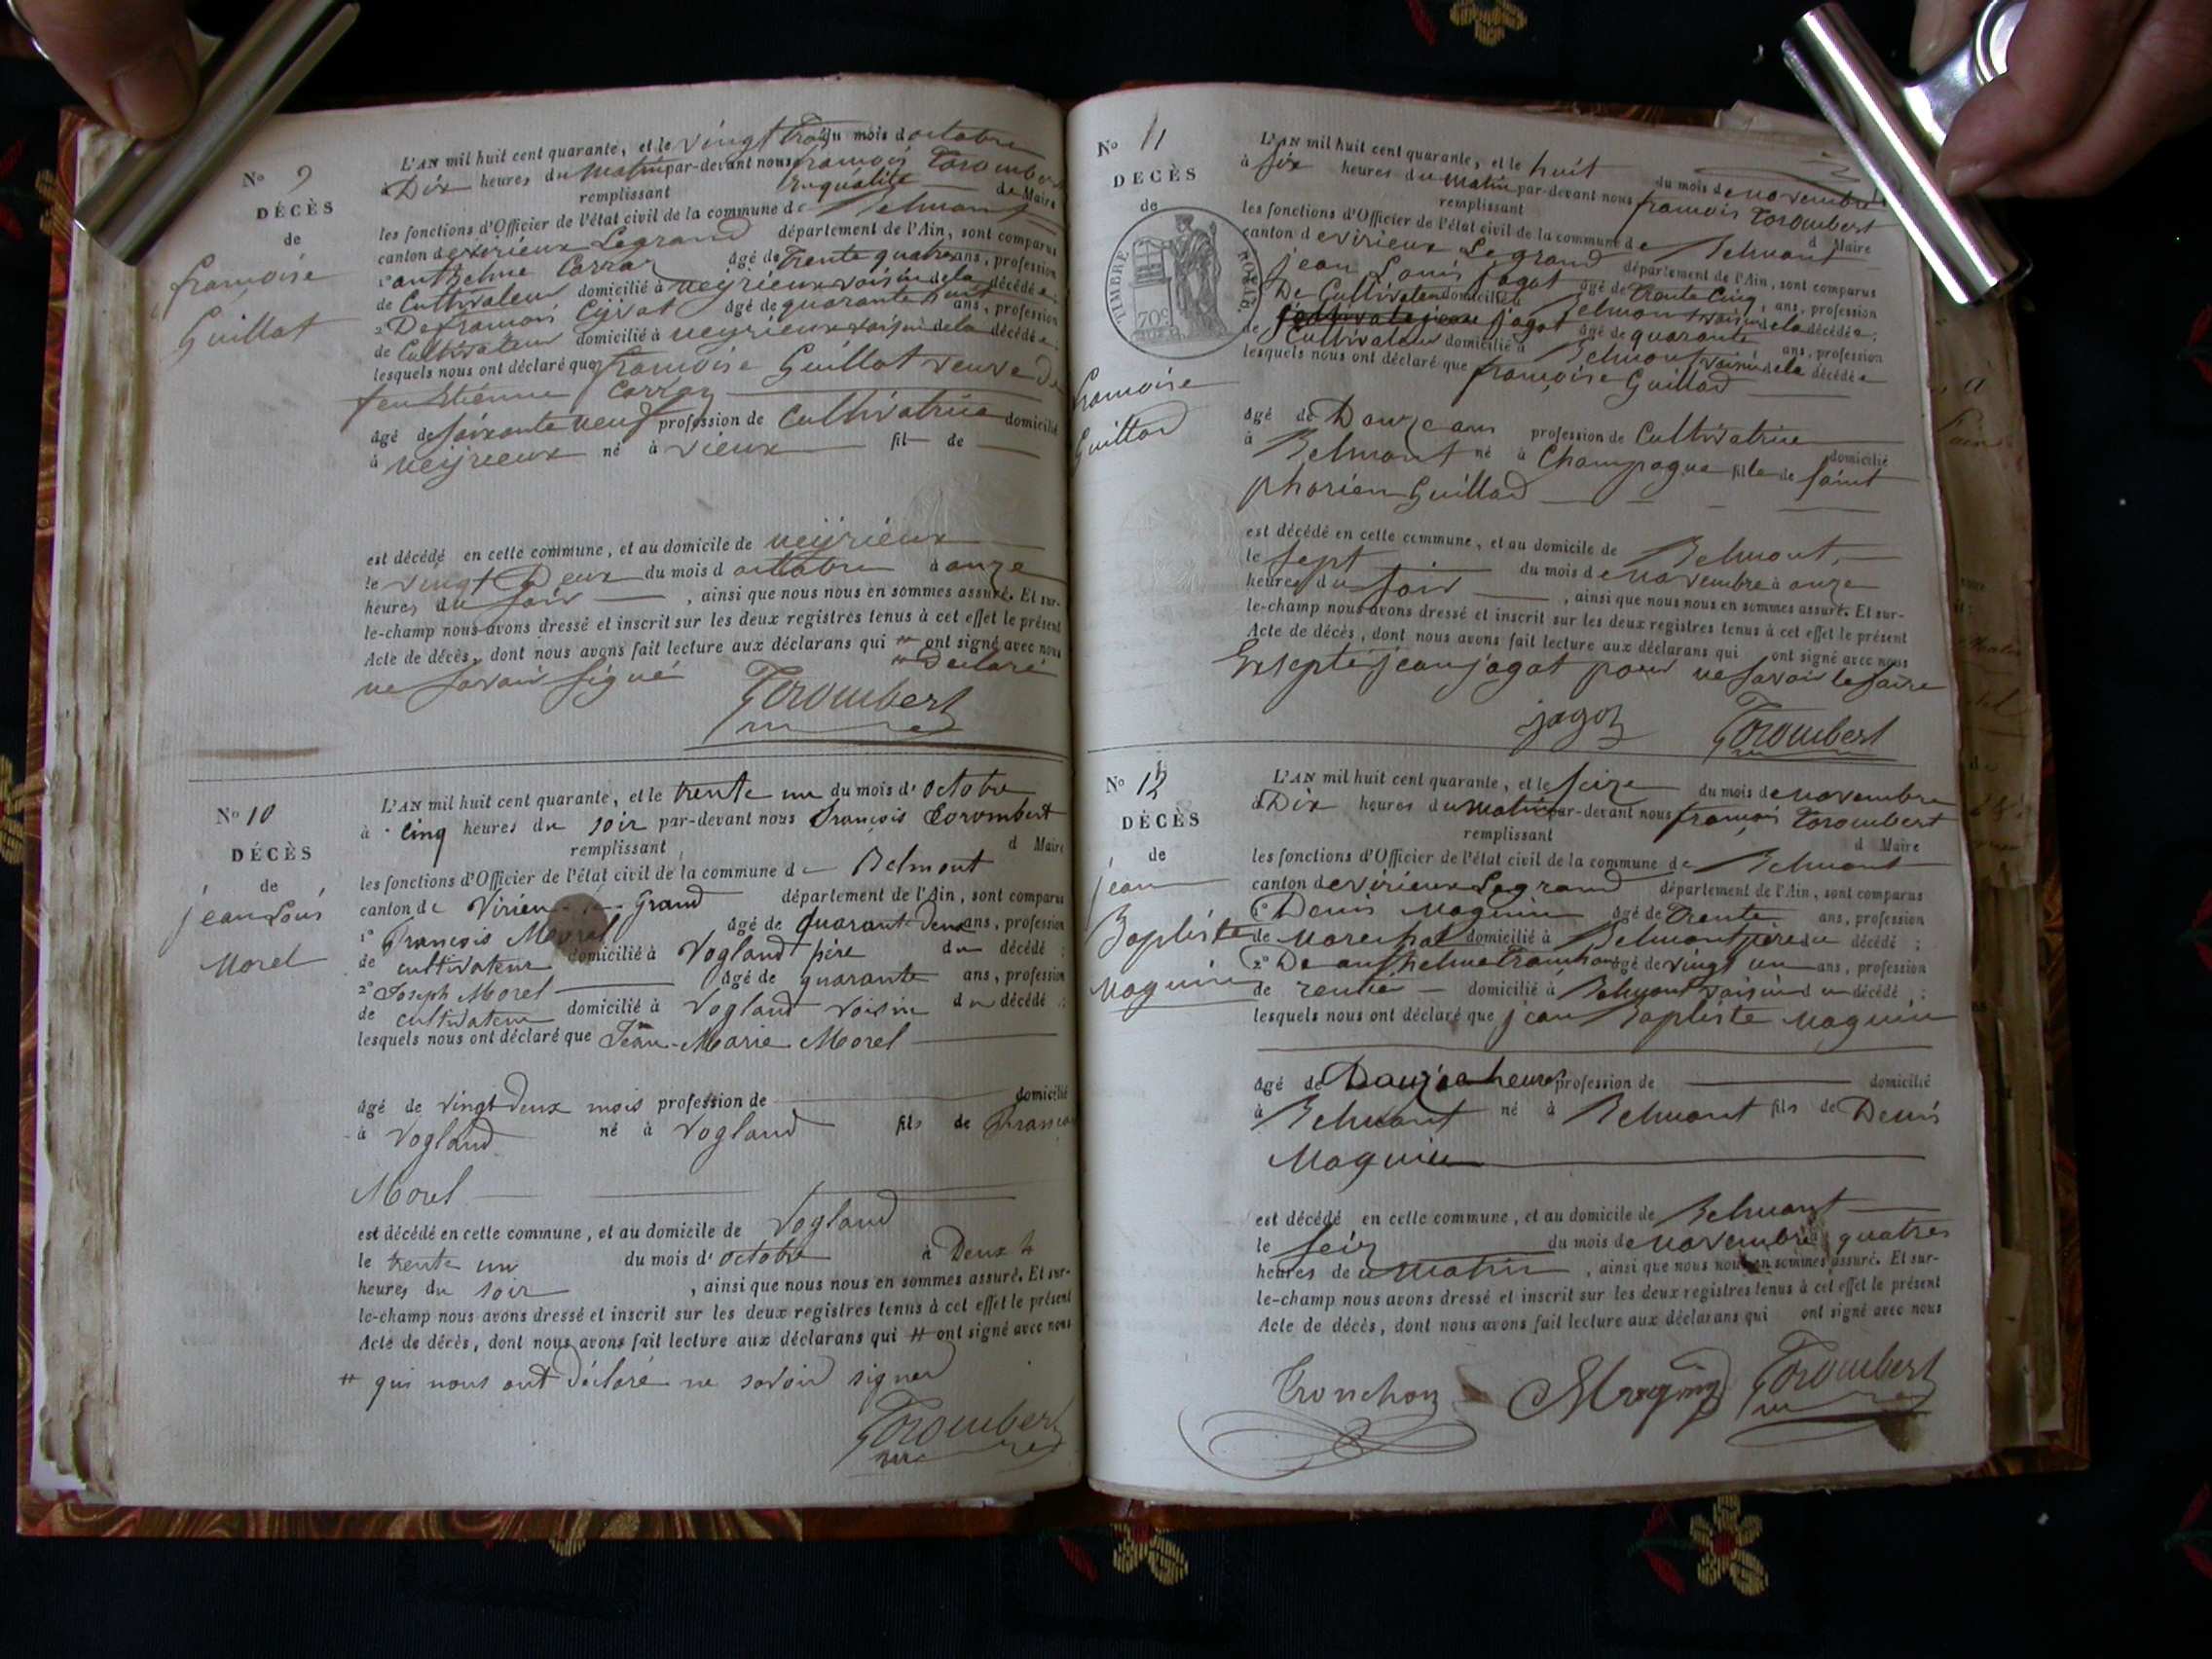 N° 9
DÉCÈS
de
françoise
Guillot
L'AN mil huit cent quarante, et le vingt trois du mois d octobre
à Dix heures du matin par-devant nous françois Torombert
remplissant En qualité de Maire
les fonctions d'Officier de l'état civil de la commune de Belmont
canton de virieux Legrand département de l'Ain, sont comparus
1° anthelme Carraz âgé de trente quatre ans, profession
de Cultivateur domicilié à neyrieux voisin de la décédée;
2° De françois âgé de quarante huit ans, profession
de Cultivateur domicilié à neyrieux voisin de la décédée;
lesquels nous ont déclaré que françoise Guillot veuve de
feu Etienne Carraz
âgé de soixante neuf profession de Cultivatrice domicilié
à neyrieux né à vieux fil de
est décédé en cette commune, et au domicile de neyrieux
le vingt Deux du mois d octobre à onze
heures du soir , ainsi que nous nous en sommes assuré. Et sur-
le-champ nous avons dressé et inscrit sur les deux registres tenus à cet effet le présent
Acte de décès, dont nous avons fait lecture aux déclarans qui ont signé avec nous
Déclaré
ne savoir signé
Torombert
N° 10
DÉCÈS
de
jean Loui
Morel
L'AN mil huit cent quarante, et le trente un du mois d' octobre
à cinq heures du soir par-devant nous François Torombert
remplissant d Maire
les fonctions d'Officier de l'état civil de la commune de Belmont
canton de Virieu le Grand département de l'Ain, sont comparus
1° François Morel âgé de quarante deux ans, profession
de cultivateur domicilié à Vogland père du décédé;
2° Joseph Morel âgé de quarante ans, profession
de cultivateur domicilié à Vogland voisin du décédé;
lesquels nous ont déclaré que Jean-Marie Morel
âgé de vingt deux mois profession de domicilié
à Vogland né à Vogland fils de François
Morel
est décédé en cette commune, et au domicile de Vogland
le trente un du mois d' octobre à Deux h
heures du soir , ainsi que nous nous en sommes assuré. Et sur-
le-champ nous avons dressé et inscrit sur les deux registres tenus à cet effet le présent
Acte de décès, dont nous avons fait lecture aux déclarans qui # ont signé avec nous
# qui nous ont déclaré ne savoir signer
Torombert
N° 11
DÉCÈS
de
TIMBRE ROYAL
70c
françoise
Guillard
L'AN mil huit cent quarante, et le huit du mois de novembre
à six heures du matin par-devant nous françois Torombert
remplissant d Maire
les fonctions d'Officier de l'état civil de la commune de Belmont
canton de virieux Legrand département de l'Ain, sont comparus
jean Louis jagot âgé de trente Cinq, ans, profession
De Cultivateur domicilié à Belmont voisin de la décédée;
jean jagot âgé de quarante ans, profession
de Cultivateur domicilié à Belmont voisin de la décédée
lesquels nous ont déclaré que françoise Guillard
âgé de Douze ans profession de Cultivatrice domicilié
à Belmont né à Champagne fille de saint
phorien Guillard
est décédé en cette commune, et au domicile de Belmont,
le sept du mois de novembre à onze
heures du soir , ainsi que nous nous en sommes assuré. Et sur-
le-champ nous avons dressé et inscrit sur les deux registres tenus à cet effet le présent
Acte de décès, dont nous avons fait lecture aux déclarans qui ont signé avec nous
Exsepté jean jagot pour ne savoir le faire
jagot Torombert
N° 12
DÉCÈS
de
jean
Baptiste
Maguin
L'AN mil huit cent quarante, et le seize du mois de novembre
à Dix heures du matin par-devant nous françois Torombert
remplissant d Maire
les fonctions d'Officier de l'état civil de la commune de Belmont
canton de virieux Legrand département de l'Ain, sont comparus
1° Denis Maguin âgé de trente ans, profession
de Marechal domicilié à Belmont père du décédé;
2° De anthelme Tronchon âgé de vingt un ans, profession
de rentier domicilié à Belmont voisin du décédé;
lesquels nous ont déclaré que jean Baptiste Maguin
âgé de Douze heures profession de domicilié
à Belmont né à Belmont fils de Denis
Maguin
est décédé en cette commune, et au domicile de Belmont
le seize du mois de novembre à quatres
heures de matin , ainsi que nous nous en sommes assuré. Et sur-
le-champ nous avons dressé et inscrit sur les deux registres tenus à cet effet le présent
Acte de décès, dont nous avons fait lecture aux déclarans qui ont signé avec nous
Tronchon Maguin Torombert